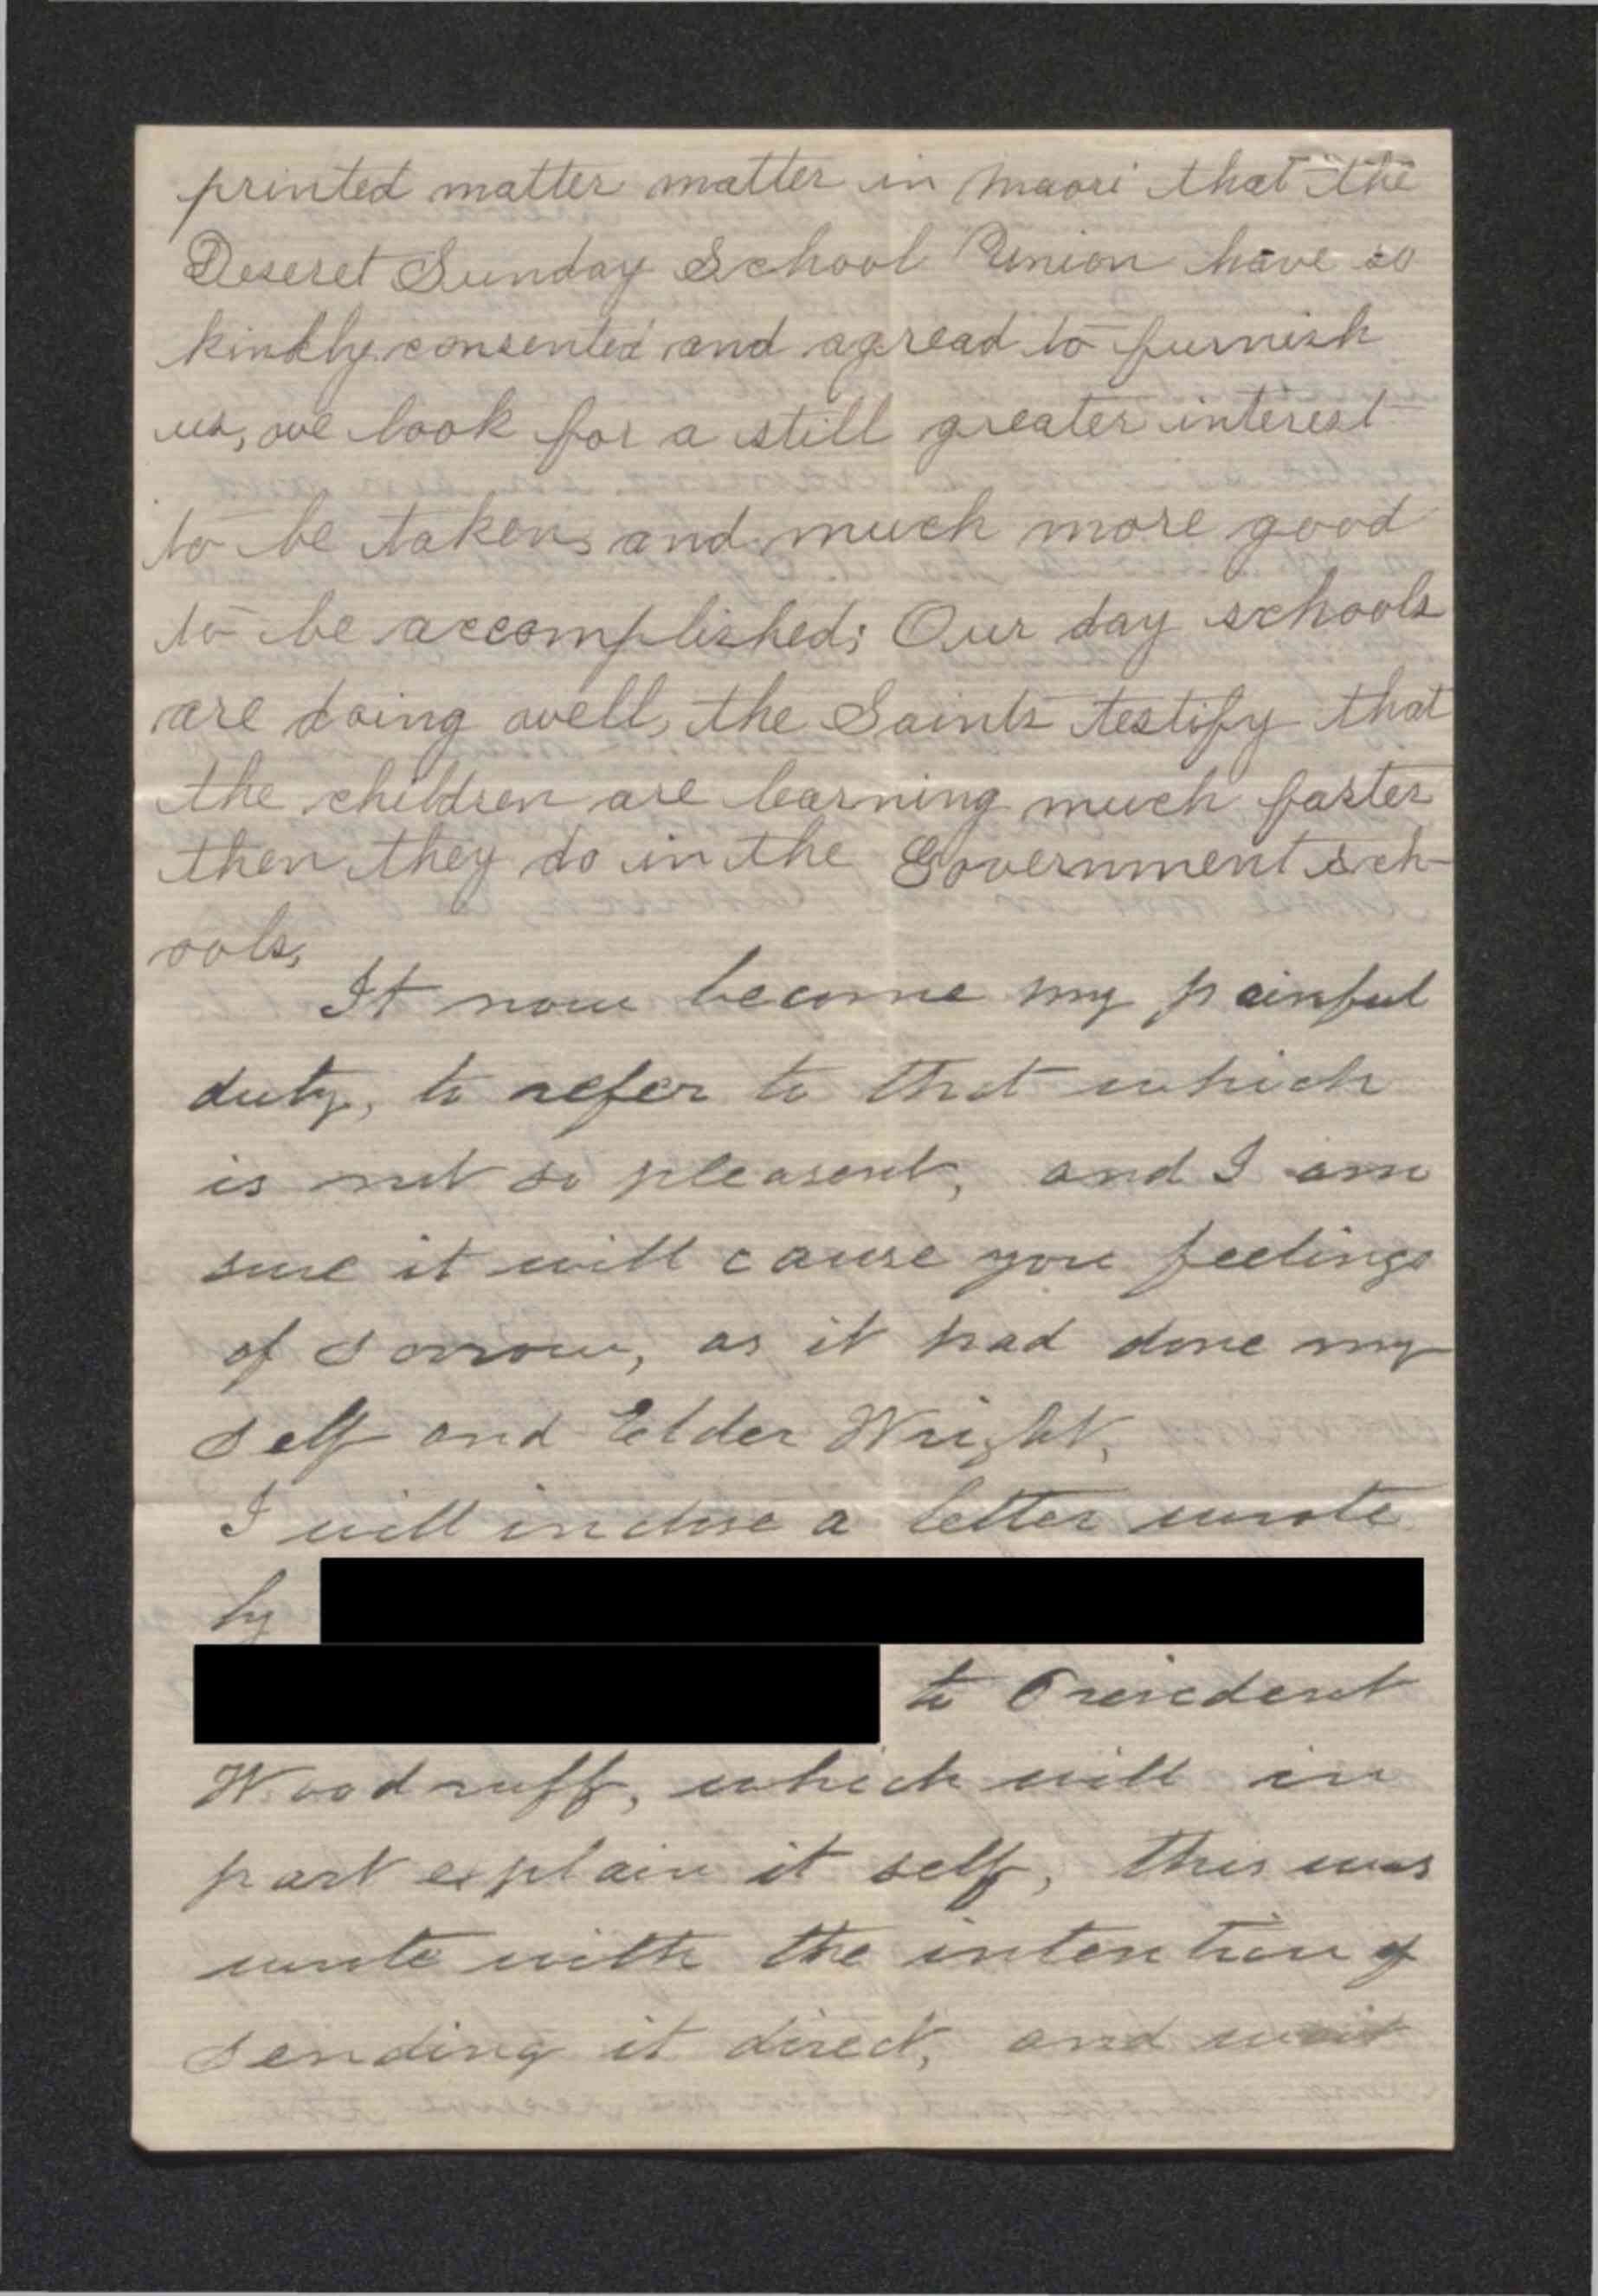 printed matter matter in Maori that the
Deseret Sunday School Union have so
kindly consented and agread to furnish
us, we look for a still greater interest
to be taken, and much more good
to be accomplished; Our day schools
are doing well, the Saints testify that
the children are learning much faster
then they do in the Government sch-
ools,
It now become my painful
duty, to refer to that which
is not so pleasent, and I am
sure it will cause you feelings
of sorrow, as it had done my
self and Elder Wright,
I will inclose a letter wrote
by
to Presedent
Woodruff, which will in
part explain it self, this was
wrote with the intention of
sending it direct, and